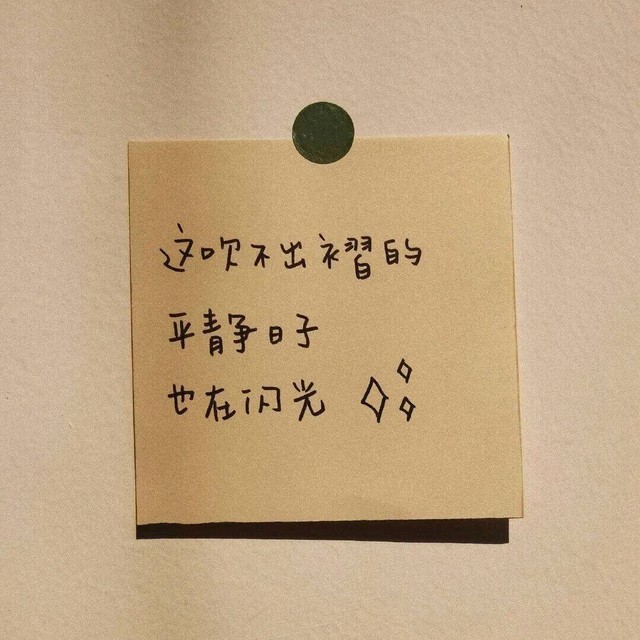 这吹不出褶的
平静日子
也在闪光